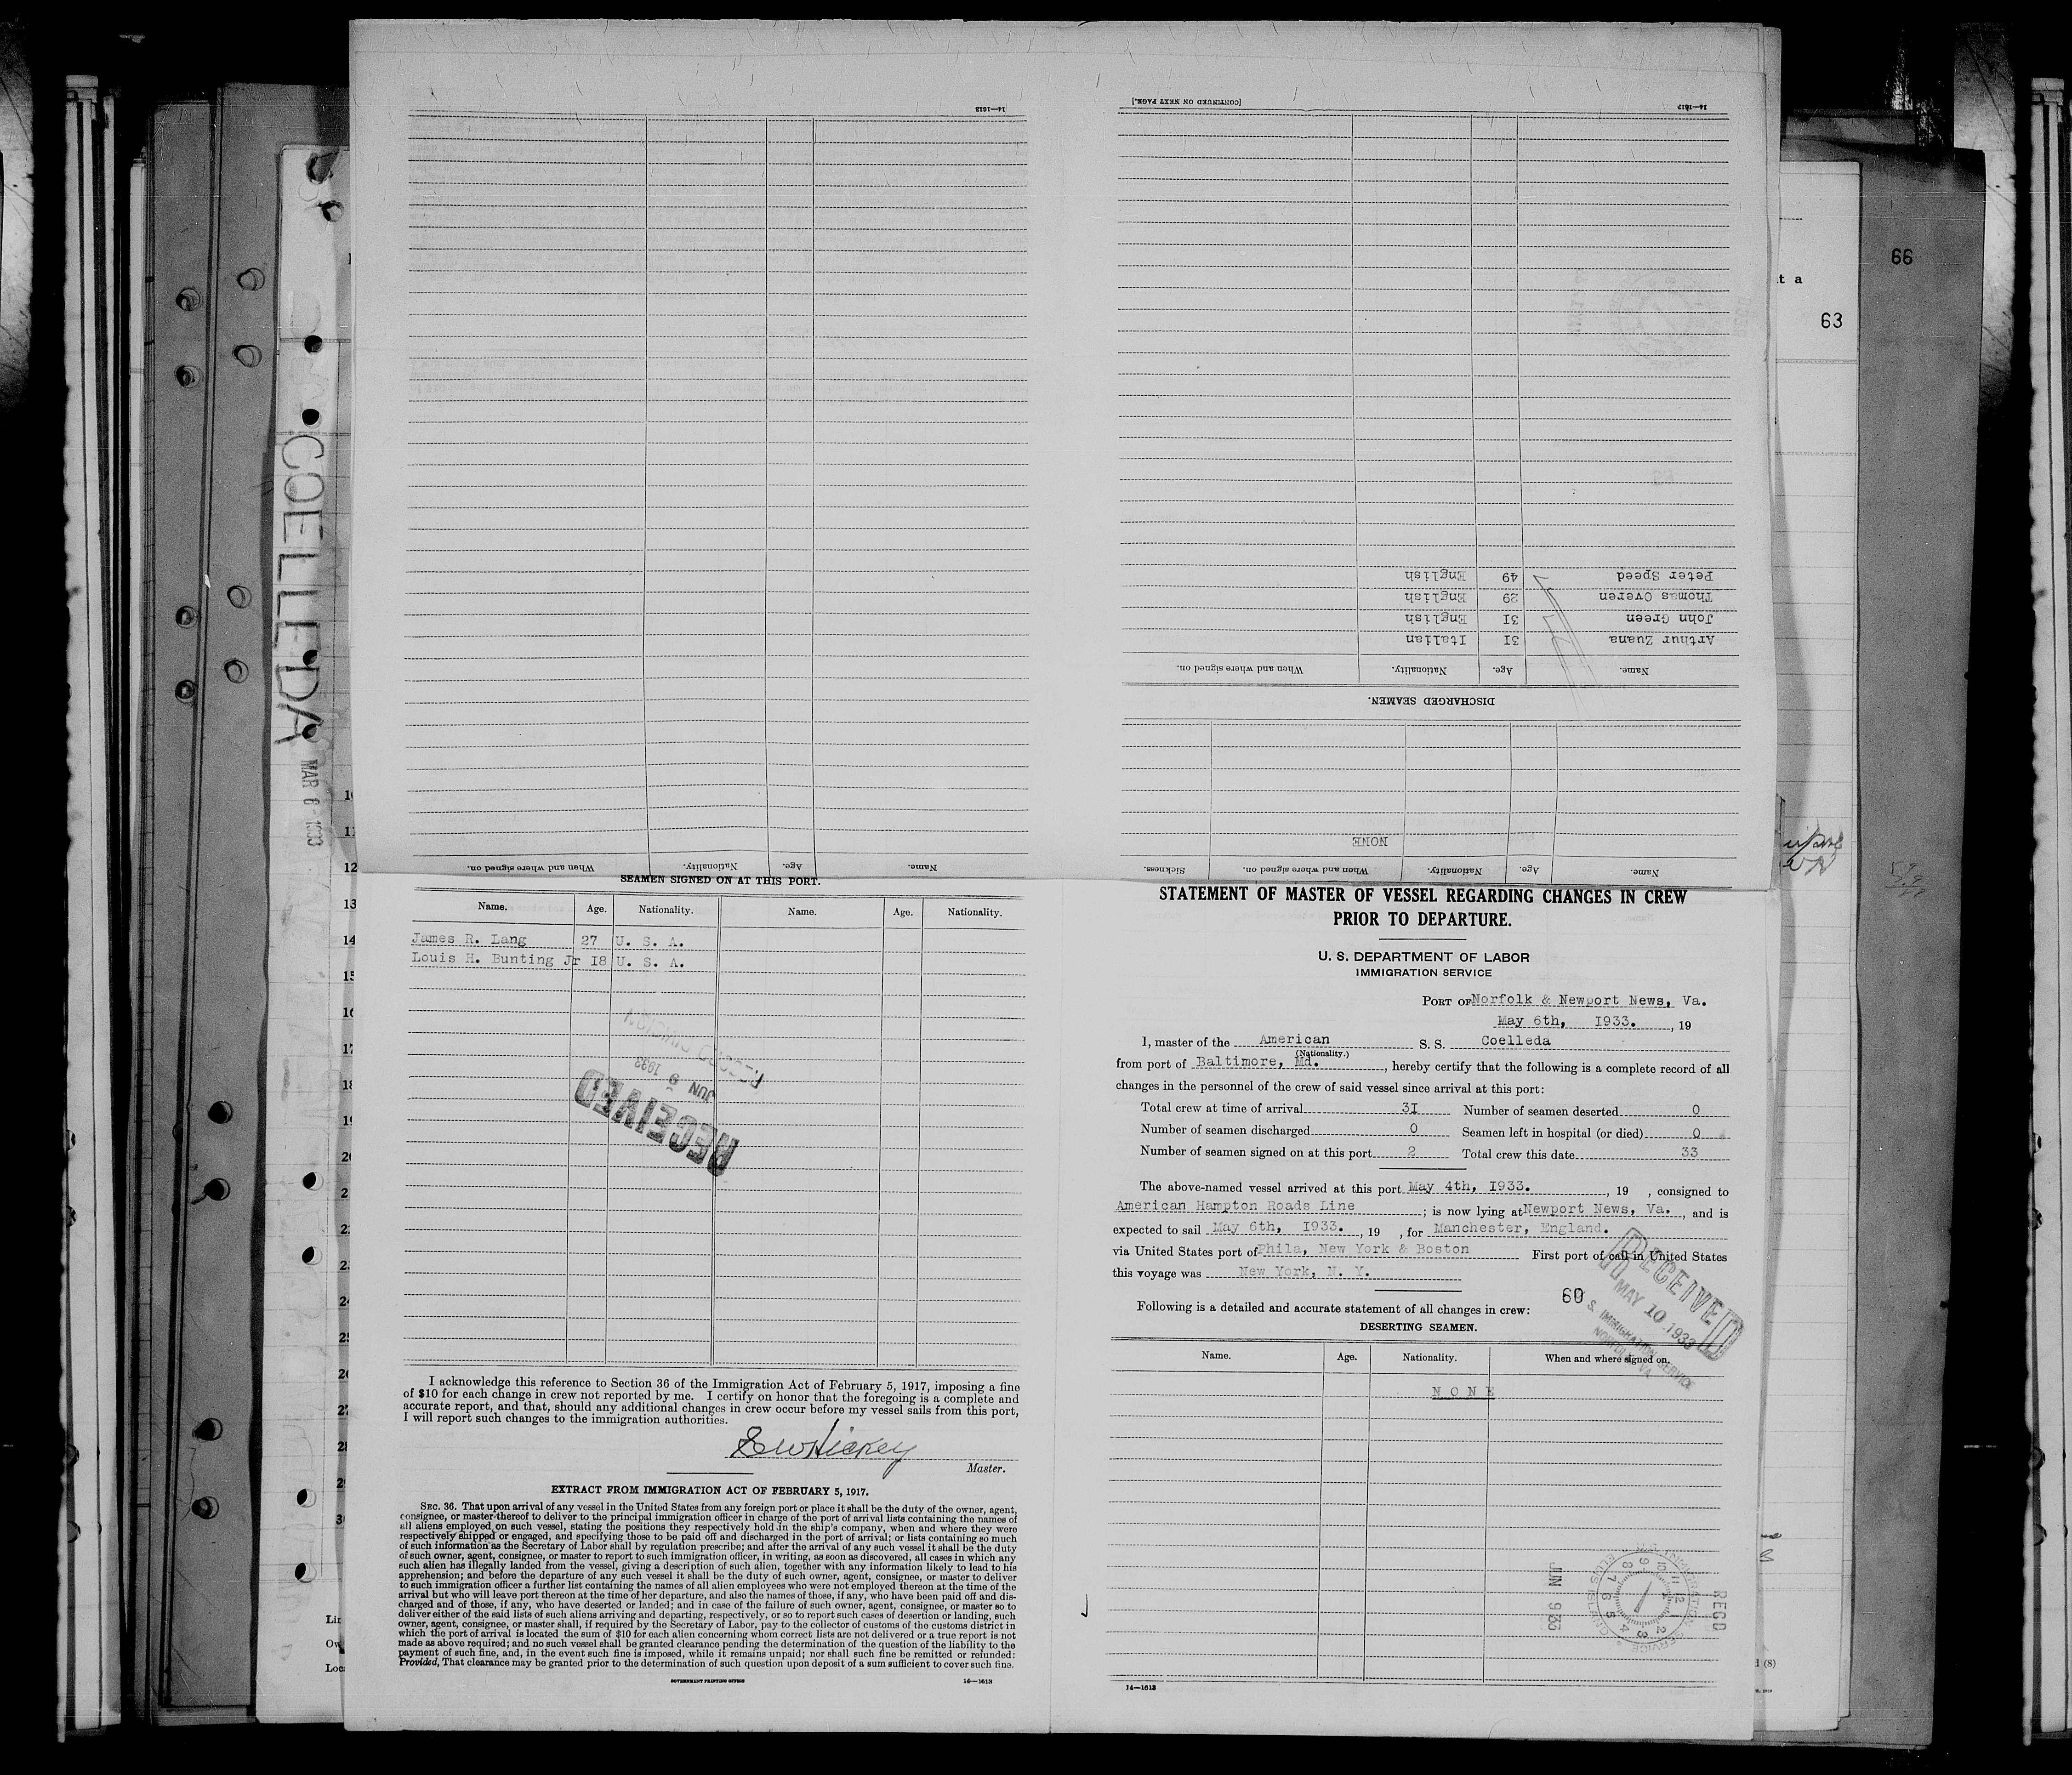 COELLEDA
MAR 6 - 1933
66
63
t a
14—1613
[CONTINUED ON NEXT PAGE.]
14—1613
Name.
Age.
Nationality.
When and where signed on.
Sickness.
NONE
DISCHARGED SEAMEN.
Name.
Age.
Nationality.
When and where signed on.
Arthur Zuana 31 Italian
John Green 31 English
Thomas Overen 29 English
Peter Speed 49 English
Name.
Age.
Nationality.
When and where signed on.
STATEMENT OF MASTER OF VESSEL REGARDING CHANGES IN CREW
PRIOR TO DEPARTURE.
U. S. DEPARTMENT OF LABOR
IMMIGRATION SERVICE
PORT OF Norfolk & Newport News, Va.
May 6th, 1933. , 19
I, master of the American S. S. Coelleda
(Nationality.)
from port of Baltimore, Md. , hereby certify that the following is a complete record of all
changes in the personnel of the crew of said vessel since arrival at this port:
Total crew at time of arrival 31 Number of seamen deserted 0
Number of seamen discharged 0 Seamen left in hospital (or died) 0
Number of seamen signed on at this port 2 Total crew this date 33
The above-named vessel arrived at this port May 4th, 1933. , 19 , consigned to
American Hampton Roads Line ; is now lying at Newport News, Va. , and is
expected to sail May 6th, 1933. , 19 , for Manchester, England.
via United States port of Phila, New York & Boston First port of call in United States
this voyage was New York, N. Y.
60
RECEIVED
MAY 10 1933
U. S. IMMIGRATION SERVICE
NORFOLK, VA.
Following is a detailed and accurate statement of all changes in crew:
DESERTING SEAMEN.
Name. Age. Nationality. When and where signed on.
N O N E
REC'D
JUN 9 1933
14—1613
SEAMEN SIGNED ON AT THIS PORT.
Name. Age. Nationality. Name. Age. Nationality.
James R. Lang 27 U. S. A.
Louis H. Bunting Jr 18 U. S. A.
RECEIVED
JUN 9 1933
RECORD DIVISION
I acknowledge this reference to Section 36 of the Immigration Act of February 5, 1917, imposing a fine
of $10 for each change in crew not reported by me. I certify on honor that the foregoing is a complete and
accurate report, and that, should any additional changes in crew occur before my vessel sails from this port,
I will report such changes to the immigration authorities.
Hickey
Master.
EXTRACT FROM IMMIGRATION ACT OF FEBRUARY 5, 1917.
SEC. 36. That upon arrival of any vessel in the United States from any foreign port or place it shall be the duty of the owner, agent,
consignee, or master thereof to deliver to the principal immigration officer in charge of the port of arrival lists containing the names of
all aliens employed on such vessel, stating the positions they respectively hold in the ship's company, when and where they were
respectively shipped or engaged, and specifying those to be paid off and discharged in the port of arrival; or lists containing so much
of such information as the Secretary of Labor shall by regulation prescribe; and after the arrival of any such vessel it shall be the duty
of such owner, agent, consignee, or master to report to such immigration officer, in writing, as soon as discovered, all cases in which any
such alien has illegally landed from the vessel, giving a description of such alien, together with any information likely to lead to his
apprehension; and before the departure of any such vessel it shall be the duty of such owner, agent, consignee, or master to deliver
to such immigration officer a further list containing the names of all alien employees who were not employed thereon at the time of the
arrival but who will leave port thereon at the time of her departure, and also the names of those, if any, who have been paid off and dis-
charged and of those, if any, who have deserted or landed; and in case of the failure of such owner, agent, consignee, or master so to
deliver either of the said lists of such aliens arriving and departing, respectively, or so to report such cases of desertion or landing, such
owner, agent, consignee, or master shall, if required by the Secretary of Labor, pay to the collector of customs of the customs district in
which the port of arrival is located the sum of $10 for each alien concerning whom correct lists are not delivered or a true report is not
made as above required; and no such vessel shall be granted clearance pending the determination of the question of the liability to the
payment of such fine, and, in the event such fine is imposed, while it remains unpaid; nor shall such fine be remitted or refunded:
Provided, That clearance may be granted prior to the determination of such question upon deposit of a sum sufficient to cover such fine.
GOVERNMENT PRINTING OFFICE
14—1613